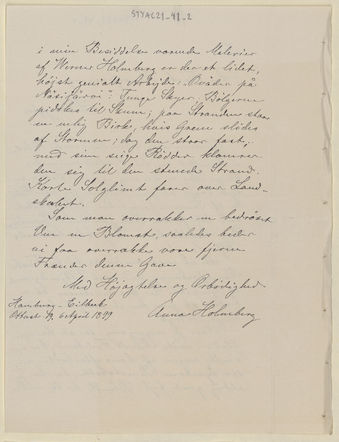 STYAC21-41-2
i min Besiddelse værende Malerier
af Werner Holmberg er der et lidet,
højst genialt Arbejde: "Oväder på
Näsijärvi": Tunge Skyer, Bølgerne
pidskes til Skum; paa Stranden staar
en ung Birke, hvis Grene slides
af Stormen; dog den staar fast,
med sine seige Rødder klamrer
den sig til den stenede Strand.
Korte Solglimt farer over Land-
skabet.
Som man overrækker en bedrøvet
Ven en Blomst, saaledes beder
vi faa overrække vore fjerne
Frænder denne Gave
Med Højagtelse og Ærbødighed
Hamburg-Eilbek
6 April 1899
Anna Holmberg